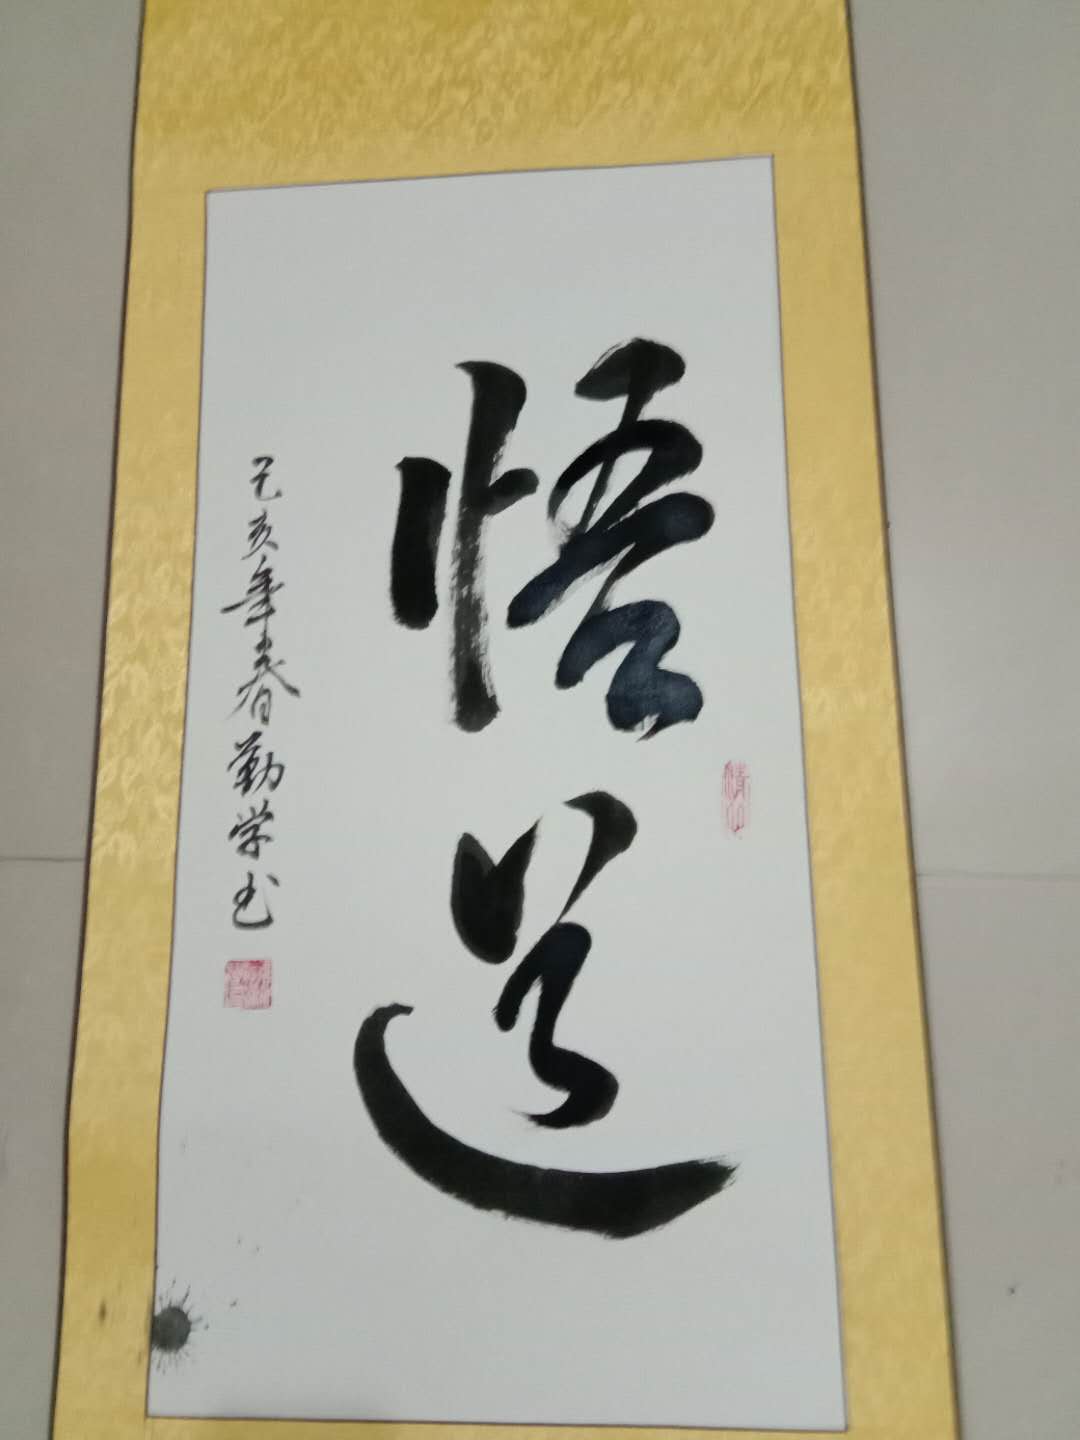 悟道
己亥年春勤学书